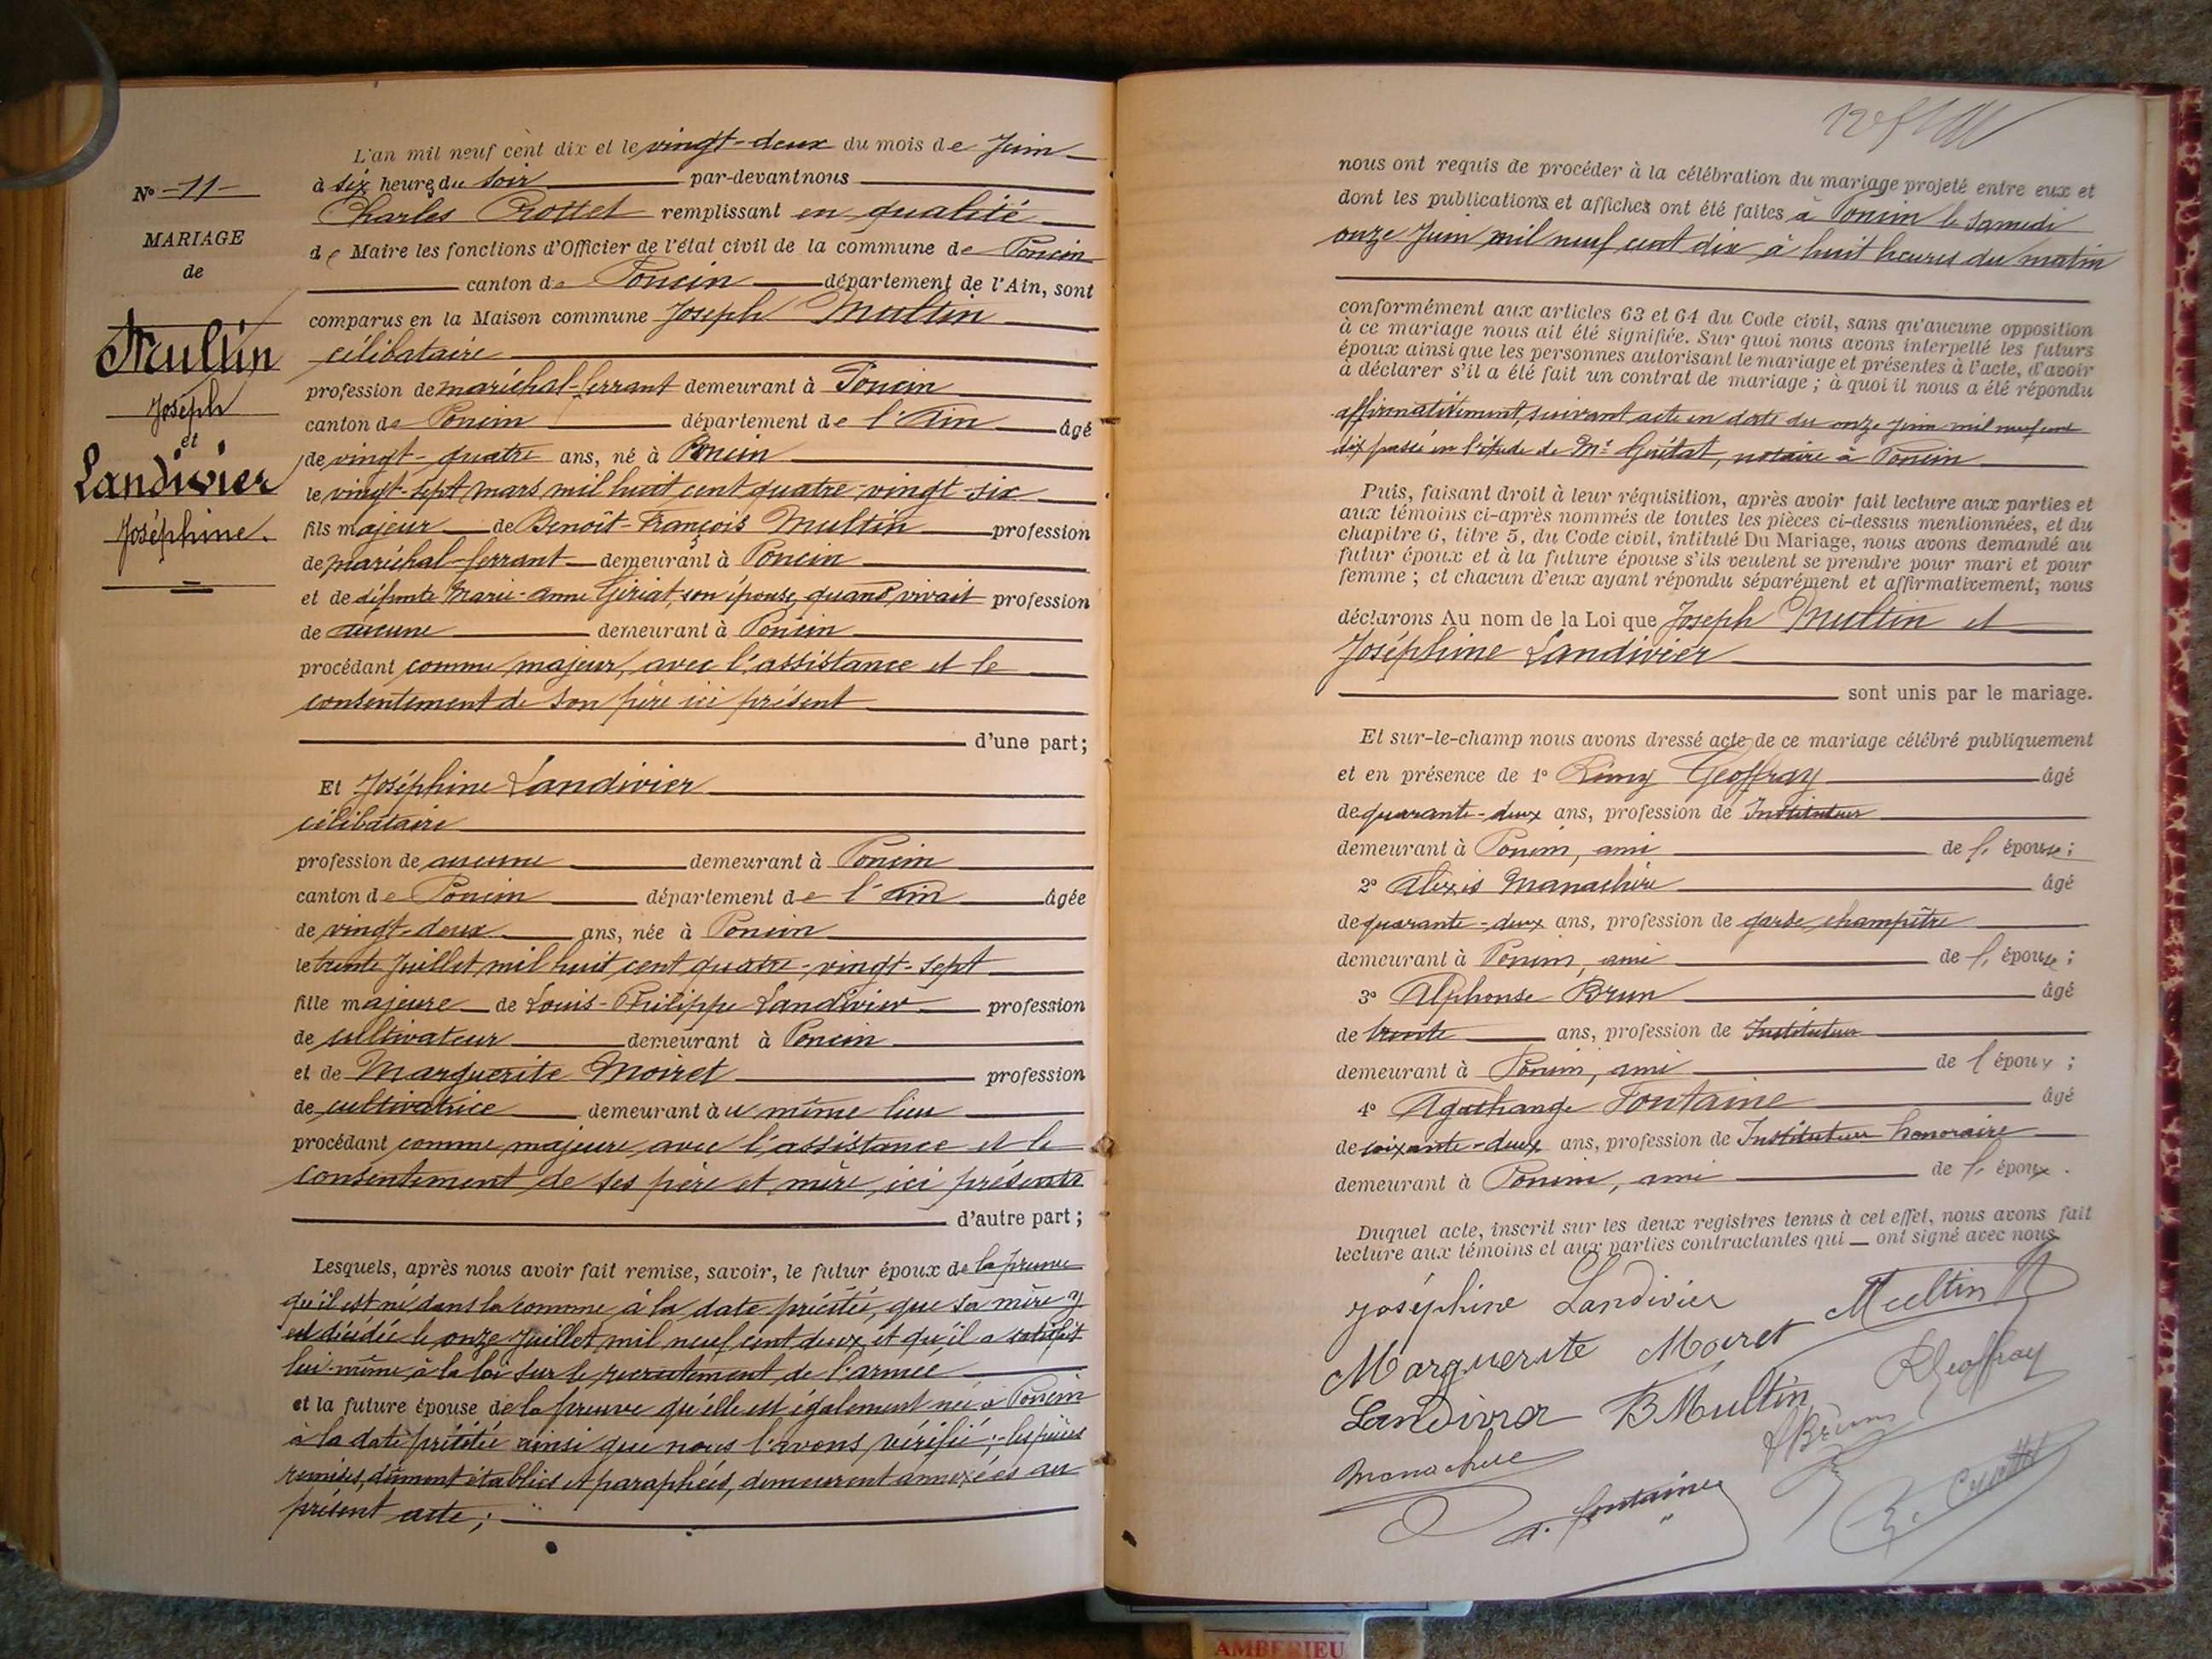 L'an mil neuf cent dix et le vingt-deux du mois de Juin
à six heures du soir par-devant nous
Charles Crottet remplissant en qualité
de Maire les fonctions d'Officier de l'état civil de la commune de Poncin
canton de Poncin département de l'Ain, sont
comparus en la Maison commune Joseph Multin
célibataire
profession de maréchal-ferrant demeurant à Poncin
canton de Poncin département de l'Ain âgé
de vingt-quatre ans, né à Poncin
le vingt-sept mars mil huit cent quatre-vingt-six
fils majeur de Benoît-François Multin profession
de maréchal-ferrant demeurant à Poncin
et de défunte Marie-Anne Gériat, son épouse, quand vivait profession
de aucune demeurant à Poncin
procédant comme majeur, avec l'assistance et le
consentement de son père ici présent
d'une part;
Et Joséphine Landivier
célibataire
profession de aucune demeurant à Poncin
canton de Poncin département de l'Ain âgée
de vingt-deux ans, née à Poncin
le trente Juillet mil huit cent quatre-vingt-sept
fille majeure de Louis-Philippe Landivier profession
de cultivateur demeurant à Poncin
et de Marguerite Moiret profession
de cultivatrice demeurant au même lieu
procédant comme majeure, avec l'assistance et le
consentement de ses père et mère, ici présents
d'autre part;
Lesquels, après nous avoir fait remise, savoir, le futur époux de la preuve
qu'il est né dans la commune à la date précitée, que sa mère y
est décédée le onze Juillet mil neuf cent deux, et qu'il a satisfait
lui-même à la loi sur le recrutement de l'armée
et la future épouse de la preuve qu'elle est également née à Poncin
à la date précitée ainsi que nous l'avons vérifié; - les pièces
remises, dûment établies et paraphées, demeurent annexées au
présent acte;
N° -11-
MARIAGE
de
Multin
Joseph
et
Landivier
Joséphine.
nous ont requis de procéder à la célébration du mariage projeté entre eux et
dont les publications et affiches ont été faites à Poncin le samedi
onze Juin mil neuf cent dix à huit heures du matin
conformément aux articles 63 et 64 du Code civil, sans qu'aucune opposition
à ce mariage nous ait été signifiée. Sur quoi nous avons interpellé les futurs
époux ainsi que les personnes autorisant le mariage et présentes à l'acte, d'avoir
à déclarer s'il a été fait un contrat de mariage; à quoi il nous a été répondu
affirmativement, suivant acte en date du onze juin mil neuf cent
dix passé en l'étude de Me Guétat, notaire à Poncin
Puis, faisant droit à leur réquisition, après avoir fait lecture aux parties et
aux témoins ci-après nommés de toutes les pièces ci-dessus mentionnées, et du
chapitre 6, titre 5, du Code civil, intitulé Du Mariage, nous avons demandé au
futur époux et à la future épouse s'ils veulent se prendre pour mari et pour
femme; et chacun d'eux ayant répondu séparément et affirmativement, nous
déclarons Au nom de la Loi que Joseph Multin et
Joséphine Landivier
sont unis par le mariage.
Et sur-le-champ nous avons dressé acte de ce mariage célébré publiquement
et en présence de 1° Rémy Geoffray âgé
de quarante-deux ans, profession de Instituteur
demeurant à Poncin, ami de l'épouse;
2° Alexis Manachère âgé
de quarante-deux ans, profession de garde champêtre
demeurant à Poncin, ami de l'épouse;
3° Alphonse Brun âgé
de trente ans, profession de Instituteur
demeurant à Poncin, ami de l'époux;
4° Agathange Fontaine âgé
de soixante-deux ans, profession de Instituteur honoraire
demeurant à Poncin, ami de l'époux.
Duquel acte, inscrit sur les deux registres tenus à cet effet, nous avons fait
lecture aux témoins et aux parties contractantes qui ont signé avec nous
Joséphine Landivier Multin
Marguerite Moiret
Landivier B Multin RGeoffray
Manachère ABrun
A. Fontaine
AMBERIEU